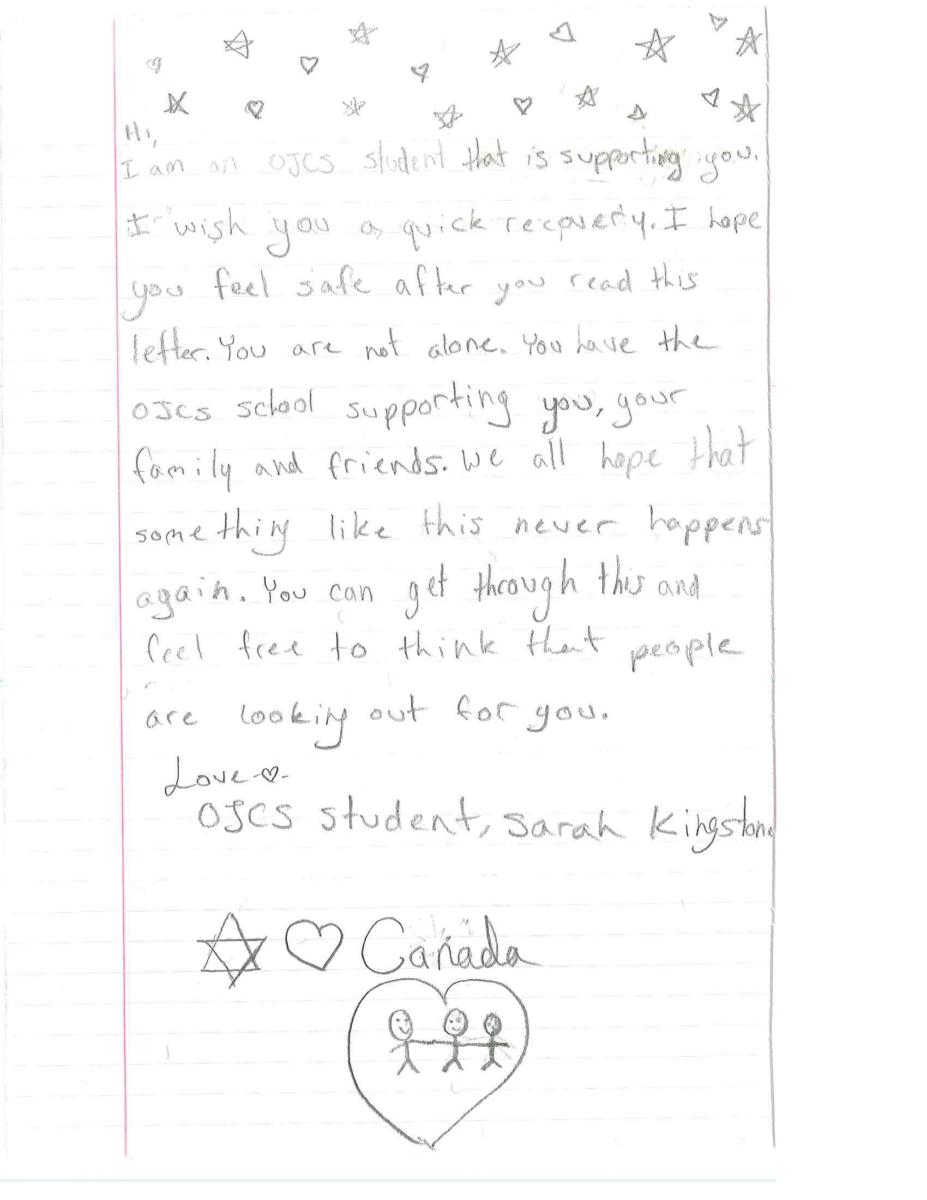 Hi,
I am an OJCS student that is supporting you.
I wish you a quick recovery. I hope
you feel safe after you read this
letter. You are not alone. You have the
OJCS school supporting you, your
family and friends. We all hope that
something like this never happens
again. You can get through this and
feel free to think that people
are looking out for you.
Love
OJCS student, Sarah Kingstone
Canada